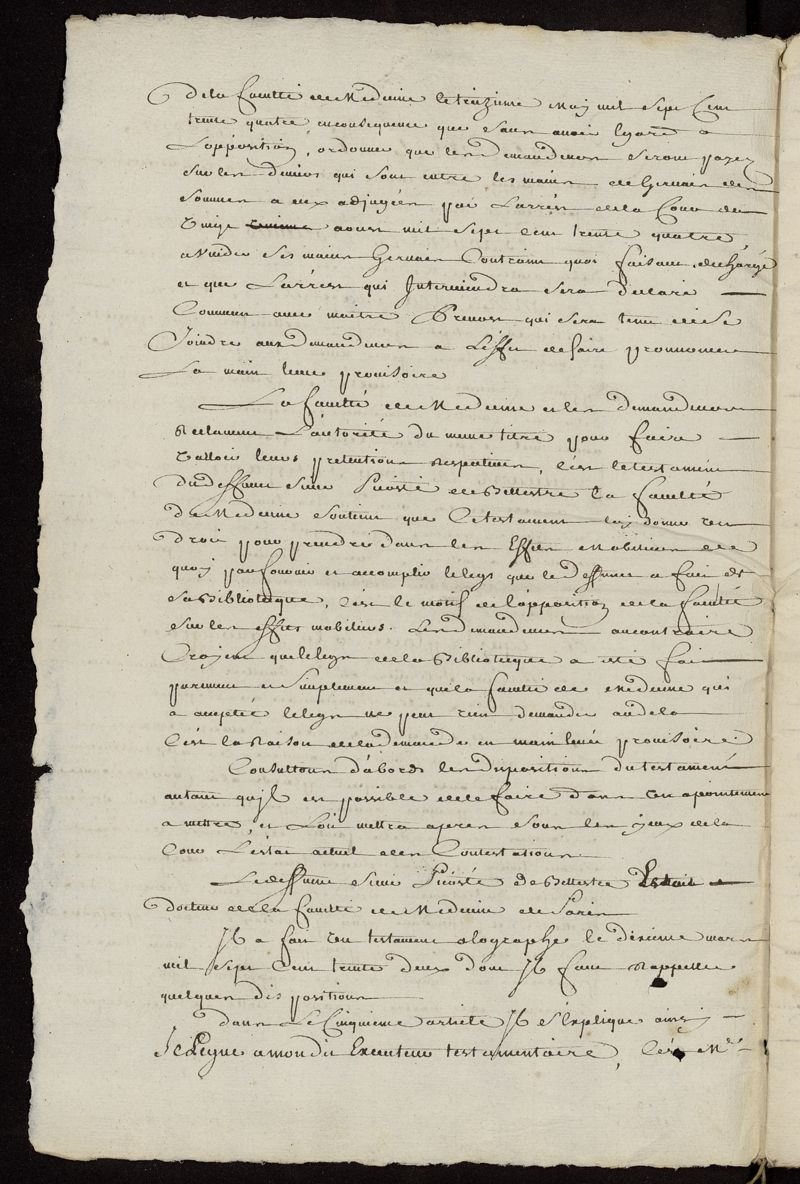 de la faculté de Medecine le treizieme May mil sept cent
trente quatre, en consequence que sans avoir Egard a
L'opposition, ordonner que les demandeurs seront payez
sur les deniers qui sont entre les mains de Gervais des
sommes a eux adjugées par L'arrest de la Cour du
Vingt aoust mil sept cent trente quatre
a Vuider ses mains Gervais Contraint quoi faisant, dechargé
et que L'arrest qui Interviendra sera declaré
Commun avec maitre Prevost qui sera tenu de se
Joindre aux demandeurs a L'effet de faire prononcer
La main levée provisoire
La faculté de Medecine et les demandeurs
Reclament L'autorité du meme titre pour faire
Valloir leurs pretentions Respectives, C'est le testament
du deffunt sieur Picoté de Bellestre La faculté
de Medecine soutient que Ce testament luy donne un
droit pour prendre dans les Effets Mobiliers de
quoy parfournir et accomplir le legs que le deffunt a fait de
sa Bibliotheque, C'est le motif de l'opposition de la faculté
sur les effets mobiliers. Les demandeurs au contraire
Croyent que le legs de la Bibliotheque a esté fait
purement et simplement et que la faculté de medecine qui
a accepté le legs ne peut rien demander au dela
C'est la Raison de la demande en main levée provisoire.
Consultons d'abord les dispositions du testament
autant qu'jl est possible de le faire dans un apointement
a mettre, et L'on mettra apres sous les yeux de la
Cour L'estat actuel des Contestations
Le deffunt sieur Picoté de Bellestre Estoit
docteur de la faculté de Medecine de Paris
Jl a fait un testament olographe le dixieme mars
mil sept cent trente deux dont Jl faut Rappeller
quelques dispositions
dans Le Cinquieme article Jl s'Explique ainsy
Je Legue a mon dit Executeur testamentaire, C'est Mr